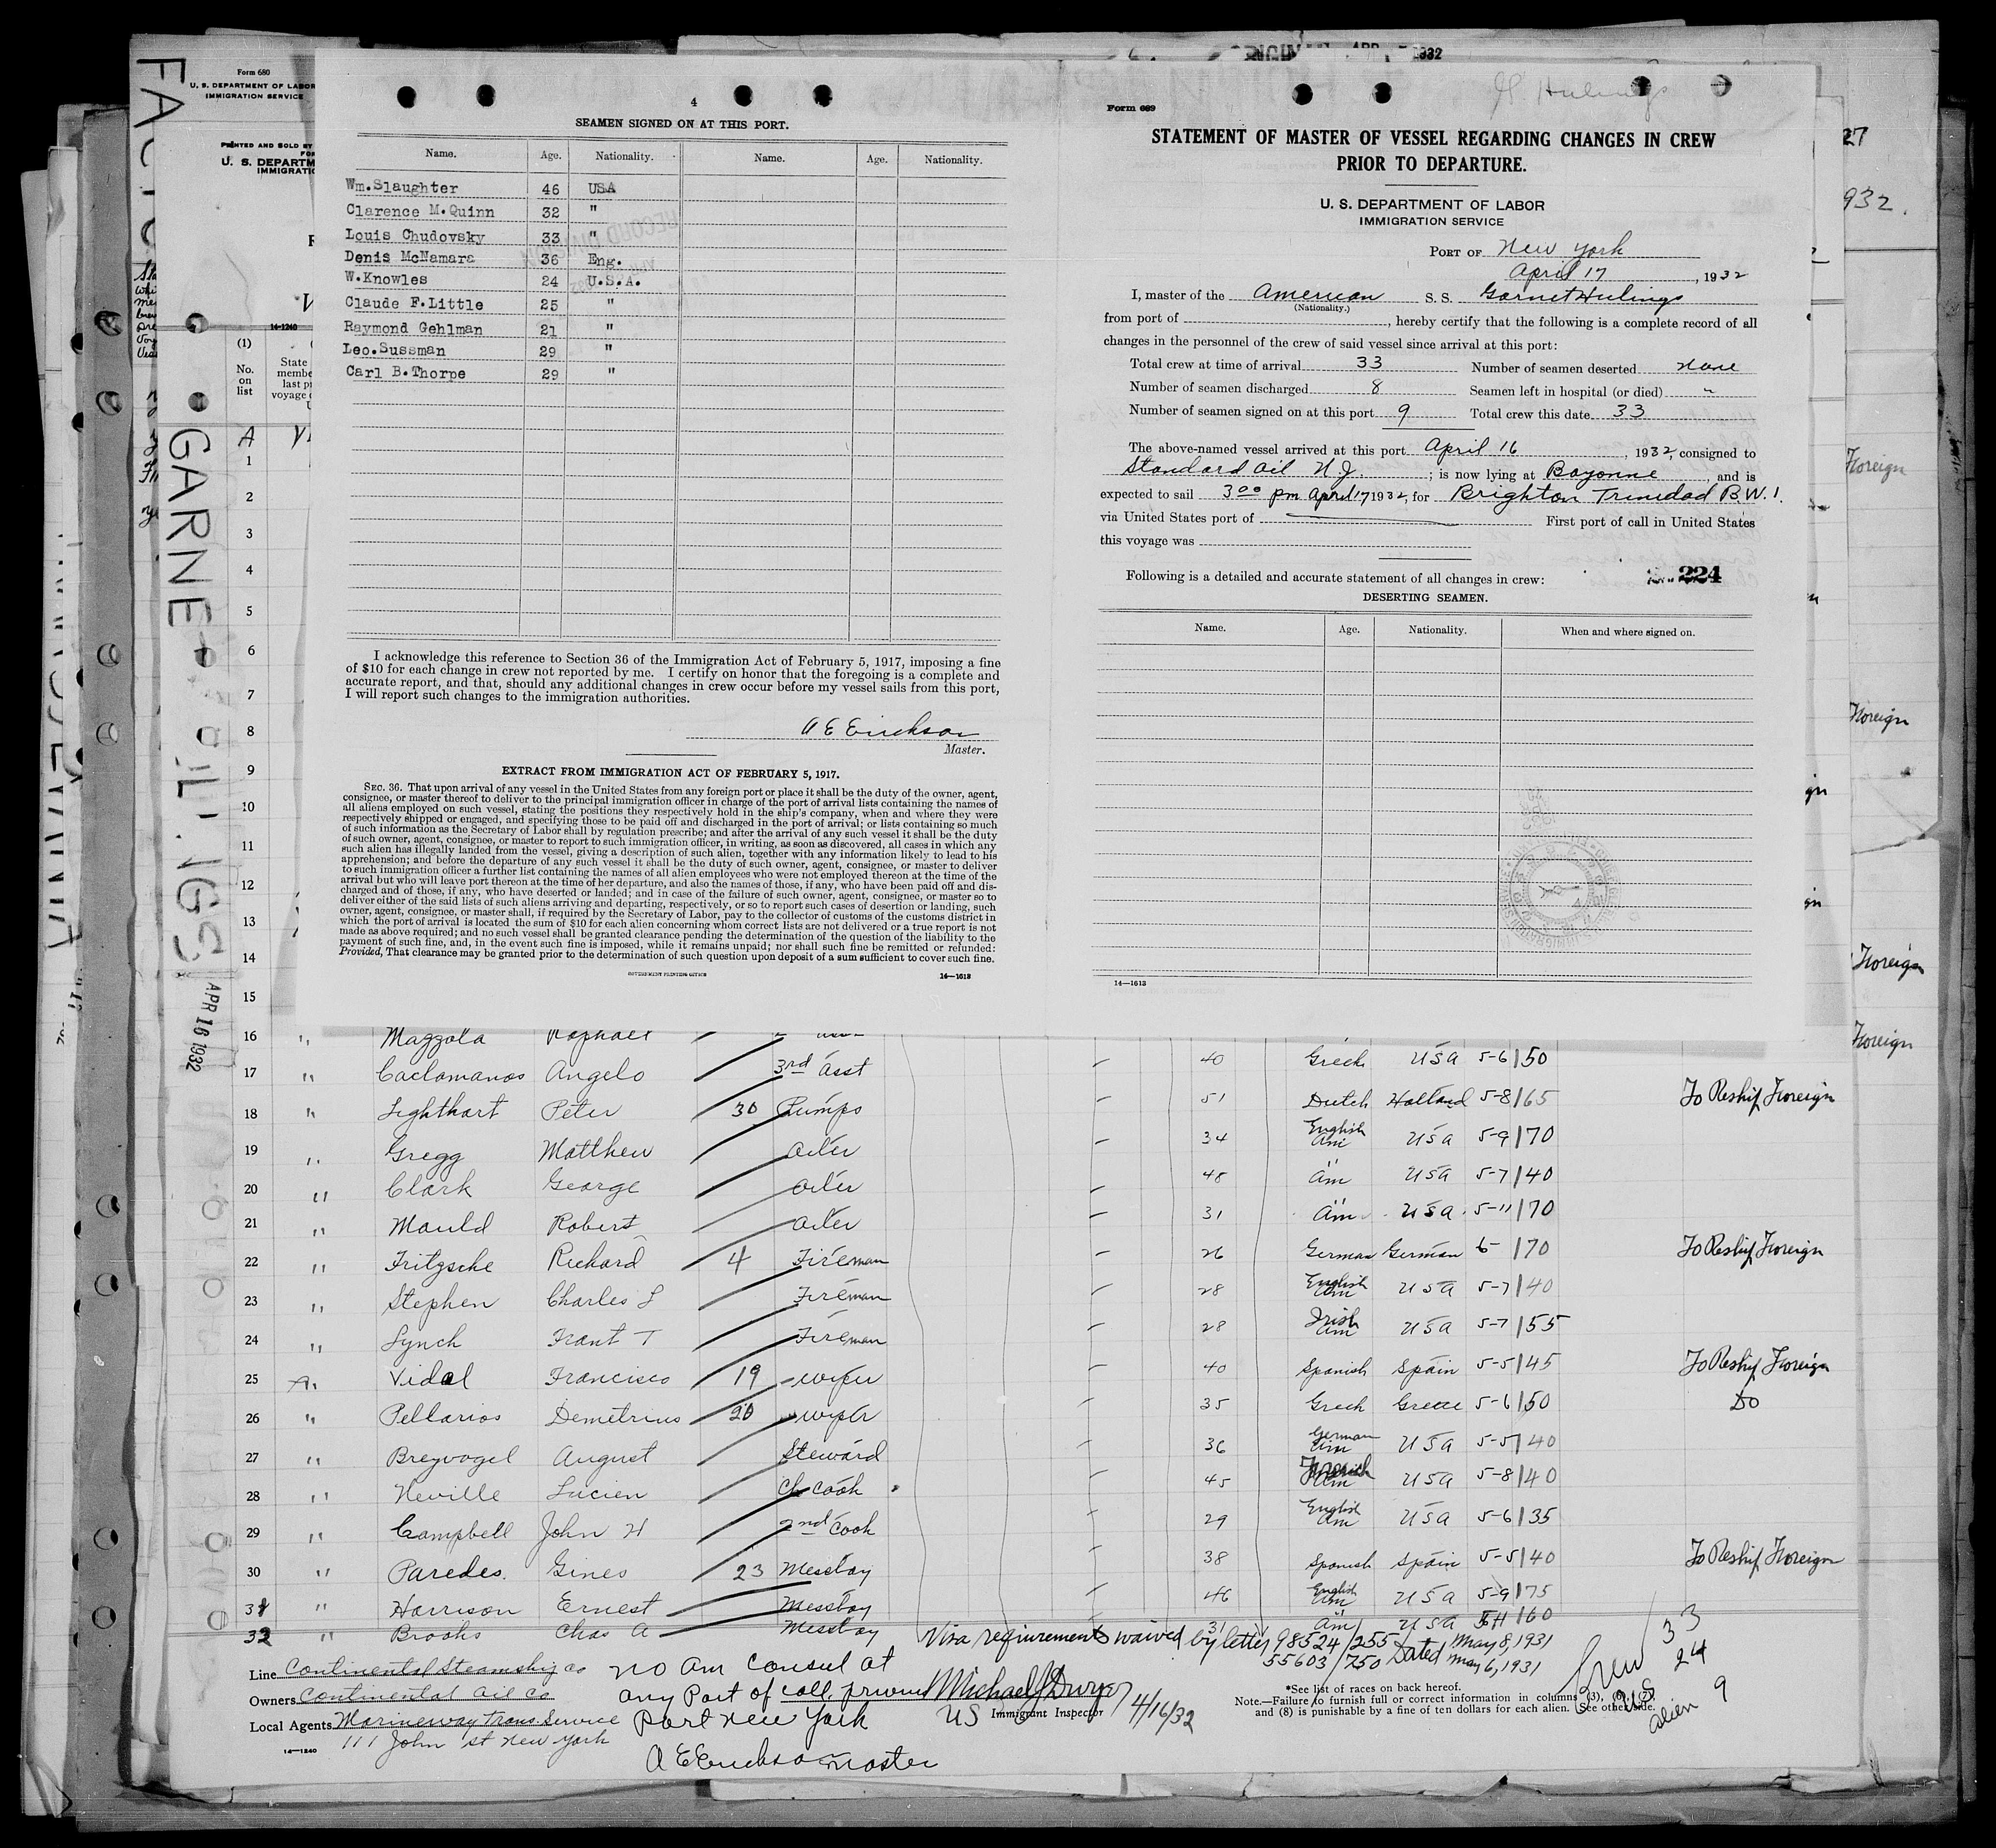 Form 680
U. S. DEPARTMENT OF LABOR
IMMIGRATION SERVICE
PRINTED AND SOLD BY
U. S. DEPARTM
IMMIGRATI
GARNET
APR 16 1932
14-1240
(1)
No.
on
list
State
membe
last p
voyage
4
SEAMEN SIGNED ON AT THIS PORT.
Name. Age. Nationality. Name. Age. Nationality.
Wm.Slaughter 46 USA
Clarence M.Quinn 32 "
Louis Chudovsky 33 "
Denis McNamara 36 Eng.
W.Knowles 24 U.S.A.
Claude F.Little 25 "
Raymond Gehlman 21 "
Leo.Sussman 29 "
Carl B.Thorpe 29 "
I acknowledge this reference to Section 36 of the Immigration Act of February 5, 1917, imposing a fine
of $10 for each change in crew not reported by me. I certify on honor that the foregoing is a complete and
accurate report, and that, should any additional changes in crew occur before my vessel sails from this port,
I will report such changes to the immigration authorities.
A E Erickson
Master.
EXTRACT FROM IMMIGRATION ACT OF FEBRUARY 5, 1917.
SEC. 36. That upon arrival of any vessel in the United States from any foreign port or place it shall be the duty of the owner, agent,
consignee, or master thereof to deliver to the principal immigration officer in charge of the port of arrival lists containing the names of
all aliens employed on such vessel, stating the positions they respectively hold in the ship's company, when and where they were
respectively shipped or engaged, and specifying those to be paid off and discharged in the port of arrival; or lists containing so much
of such information as the Secretary of Labor shall by regulation prescribe; and after the arrival of any such vessel it shall be the duty
of such owner, agent, consignee, or master to report to such immigration officer, in writing, as soon as discovered, all cases in which any
such alien has illegally landed from the vessel, giving a description of such alien, together with any information likely to lead to his
apprehension; and before the departure of any such vessel it shall be the duty of such owner, agent, consignee, or master to deliver
to such immigration officer a further list containing the names of all alien employees who were not employed thereon at the time of the
arrival but who will leave port thereon at the time of her departure, and also the names of those, if any, who have been paid off and dis-
charged and of those, if any, who have deserted or landed; and in case of the failure of such owner, agent, consignee, or master so to
deliver either of the said lists of such aliens arriving and departing, respectively, or so to report such cases of desertion or landing, such
owner, agent, consignee, or master shall, if required by the Secretary of Labor, pay to the collector of customs of the customs district in
which the port of arrival is located the sum of $10 for each alien concerning whom correct lists are not delivered or a true report is not
made as above required; and no such vessel shall be granted clearance pending the determination of the question of the liability to the
payment of such fine, and, in the event such fine is imposed, while it remains unpaid; nor shall such fine be remitted or refunded:
Provided, That clearance may be granted prior to the determination of such question upon deposit of a sum sufficient to cover such fine.
GOVERNMENT PRINTING OFFICE 14—1613
G Hulings
Form 689
STATEMENT OF MASTER OF VESSEL REGARDING CHANGES IN CREW
PRIOR TO DEPARTURE.
U. S. DEPARTMENT OF LABOR
IMMIGRATION SERVICE
PORT OF New York
April 17, 1932
I, master of the American S. S. Garnet Hulings
(Nationality.)
from port of , hereby certify that the following is a complete record of all
changes in the personnel of the crew of said vessel since arrival at this port:
Total crew at time of arrival 33 Number of seamen deserted None
Number of seamen discharged 8 Seamen left in hospital (or died) "
Number of seamen signed on at this port 9 Total crew this date 33
The above-named vessel arrived at this port April 16, 1932, consigned to
Standard Oil N.J. ; is now lying at Bayonne, and is
expected to sail 3 00 pm April 17 1932, for Brighton Trinidad B.W.I.
via United States port of First port of call in United States
this voyage was
Following is a detailed and accurate statement of all changes in crew:
224
DESERTING SEAMEN.
Name. Age. Nationality. When and where signed on.
14—1613
A
1
2
3
4
5
6
7
8
9
10
11
12
13
14
15
16 " Mazzola Raphael
17 " Caclamanos Angelo 3rd Asst 40 Greek USA 5-6 150
18 " Lighthart Peter 30 Pumps 51 Dutch Holland 5-8 165 To Reship Foreign
19 " Gregg Matthew Oiler 34 English Am USA 5-9 170
20 " Clark George Oiler 48 Am USA 5-7 140
21 " Mauld Robert Oiler 31 Am USA 5-11 170
22 " Fritzsche Richard 4 Fireman 26 German German 6- 170 To Reship Foreign
23 " Stephen Charles L Fireman 28 English Am USA 5-7 140
24 " Lynch Frant T Fireman 28 Irish Am USA 5-7 155
25 " Vidal Francisco 19 wiper 40 Spanish Spain 5-5 145 To Reship Foreign
26 " Pellarios Demetrius 20 wiper 35 Greek Greece 5-6 150 Do
27 " Breyvogel August Steward 36 German Am USA 5-5 140
28 " Neville Lucien Ch Cook 45 French Am USA 5-8 140
29 " Campbell John H 2nd Cook 29 English Am USA 5-6 135
30 " Paredes. Gines 23 Messboy 38 Spanish Spain 5-5 140 To Reship Foreign
31 " Harrison Ernest Messboy 46 English Am USA 5-9 175
32 " Brooks Chas A Messboy 31 Am USA 5-11 160
Visa requirements waived by letter 98524/255 Dated May 8, 1931
55603/750 May 6, 1931
Line Continental Steamship Co
Owners Continental Oil Co
Local Agents Marineway Trans Service
111 John St New York
14—1240
No Am Consul at
any Port of call.
Port New York
A E Erickson Master
Michael J Dwyer
US Immigrant Inspector 4/16/32
*See list of races on back hereof.
Note.—Failure to furnish full or correct information in columns (3), (6), (7),
and (8) is punishable by a fine of ten dollars for each alien. See other side.
Crew 33
US 24
Alien 9
27
932.
Foreign
Foreign
Foreign
Foreign